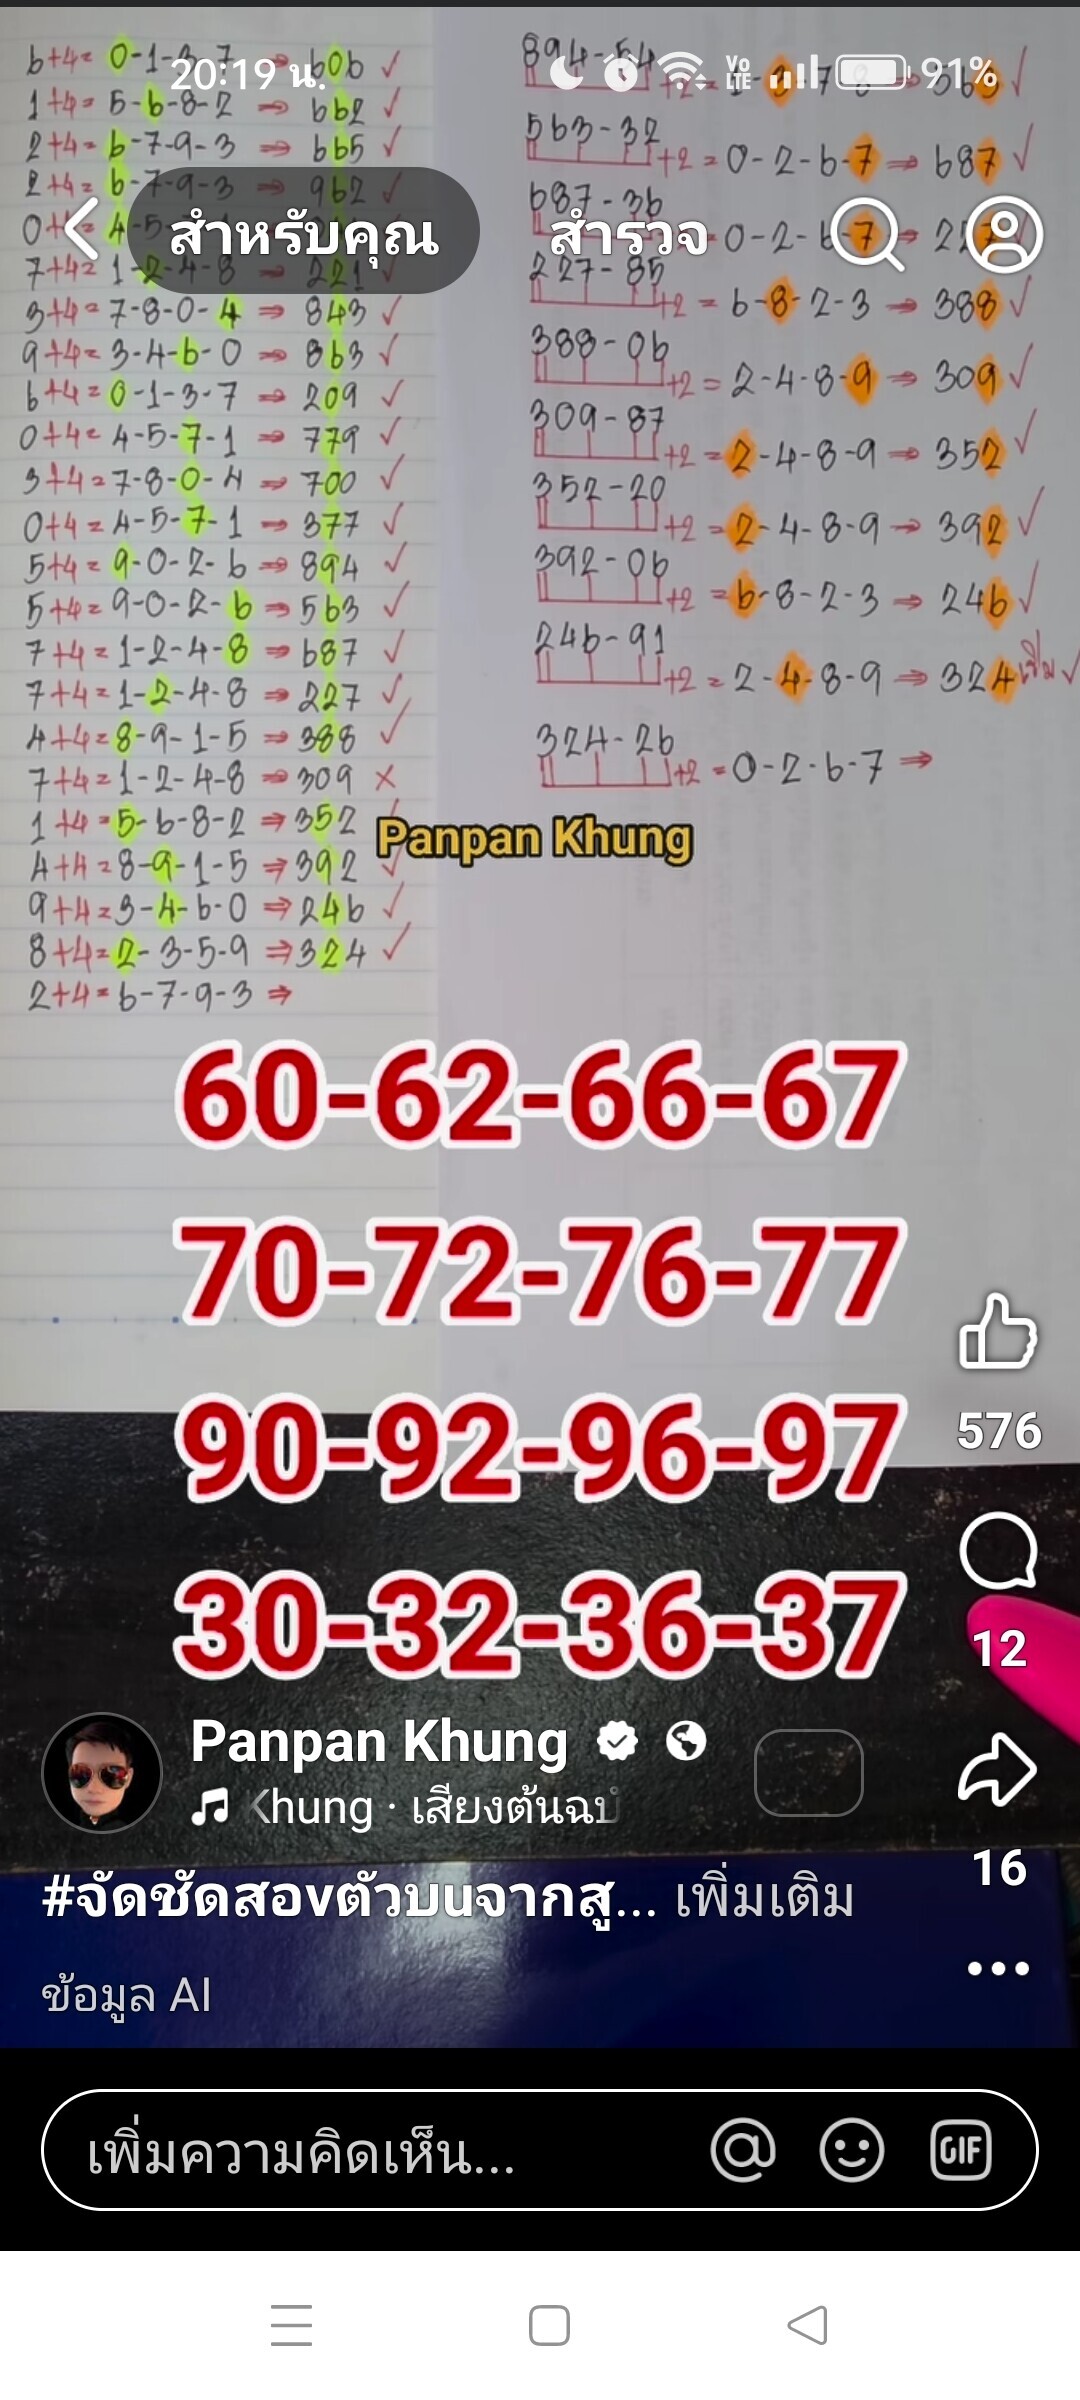 20:19 น.
VO LTE
91%
สำหรับคุณ
สำรวจ
6+4= 0-1-3-7 ⇒ 606 ✓
1+4= 5-6-8-2 ⇒ 662 ✓
2+4= 6-7-9-3 ⇒ 665 ✓
2+4= 6-7-9-3 ⇒ 962 ✓
0+4= 4-5-
7+4= 1-2-4-8 ⇒ 221 ✓
3+4= 7-8-0-4 ⇒ 843 ✓
9+4= 3-4-6-0 ⇒ 863 ✓
6+4= 0-1-3-7 ⇒ 209 ✓
0+4= 4-5-7-1 ⇒ 779 ✓
3+4= 7-8-0-4 ⇒ 700 ✓
0+4= 4-5-7-1 ⇒ 377 ✓
5+4= 9-0-2-6 ⇒ 894 ✓
5+4= 9-0-2-6 ⇒ 563 ✓
7+4= 1-2-4-8 ⇒ 687 ✓
7+4= 1-2-4-8 ⇒ 227 ✓
4+4= 8-9-1-5 ⇒ 388 ✓
7+4= 1-2-4-8 ⇒ 309 ×
1+4= 5-6-8-2 ⇒ 352 ✓
4+4= 8-9-1-5 ⇒ 392 ✓
9+4= 3-4-6-0 ⇒ 246 ✓
8+4= 2-3-5-9 ⇒ 324 ✓
2+4= 6-7-9-3 ⇒
894-54
+2 = ⇒ 563 ✓
563-32
+2 = 0-2-6-7 ⇒ 687 ✓
687-36
0-2-6-7 ⇒ 227
227-85
+2 = 6-8-2-3 ⇒ 388 ✓
388-06
+2 = 2-4-8-9 ⇒ 309 ✓
309-87
+2 = 2-4-8-9 ⇒ 352 ✓
352-20
+2 = 2-4-8-9 ⇒ 392 ✓
392-06
+2 = 6-8-2-3 ⇒ 246 ✓
246-91
+2 = 2-4-8-9 ⇒ 324 ✓
324-26
+2 = 0-2-6-7 ⇒
Panpan Khung
60-62-66-67
70-72-76-77
90-92-96-97
30-32-36-37
576
12
16
Panpan Khung
Khung · เสียงต้นฉบั
#จัดชัดสองตัวบนจากสู... เพิ่มเติม
ข้อมูล AI
เพิ่มความคิดเห็น...
GIF